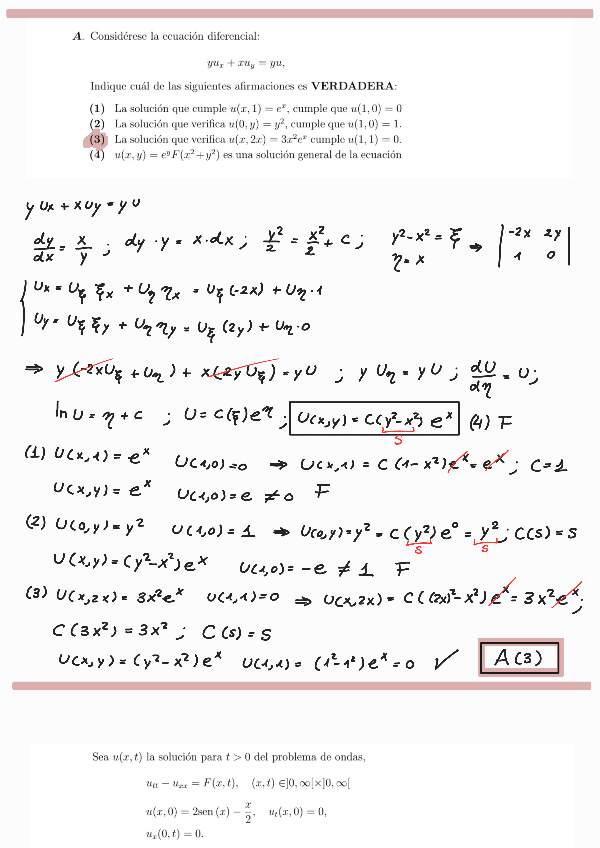 A. Considérese la ecuación diferencial:
yuₓ + xu_y = yu,
Indique cuál de las siguientes afirmaciones es VERDADERA:
(1) La solución que cumple u(x, 1) = eˣ, cumple que u(1, 0) = 0
(2) La solución que verifica u(0, y) = y², cumple que u(1, 0) = 1.
(3) La solución que verifica u(x, 2x) = 3x²eˣ cumple u(1, 1) = 0.
(4) u(x, y) = e^y F(x² + y²) es una solución general de la ecuación
y Ux + x Uy = y U
dy/dx = x/y ; dy · y = x · dx ; y²/2 = x²/2 + C ; y² - x² = ξ → | -2x 2y |
η = x | 1 0 |
Ux = Uξ ξx + Uη ηx = Uξ (-2x) + Uη · 1
Uy = Uξ ξy + Uη ηy = Uξ (2y) + Uη · 0
⇒ y (-2x Uξ + Uη) + x (2y Uξ) = y U ; y Uη = y U ; dU/dη = U ;
ln U = η + C ; U = C(ξ) e^η ; U(x,y) = C(y² - x²) eˣ (4) F
s
(1) U(x,1) = eˣ U(1,0) = 0 ⇒ U(x,1) = C (1 - x²) eˣ = eˣ ; C = 1
U(x,y) = eˣ U(1,0) = e ≠ 0 F
(2) U(0,y) = y² U(1,0) = 1 ⇒ U(0,y) = y² = C (y²) e⁰ = y² ; C(s) = s
s s
U(x,y) = (y² - x²) eˣ U(1,0) = -e ≠ 1 F
(3) U(x,2x) = 3x²eˣ U(1,1) = 0 ⇒ U(x,2x) = C ((2x)² - x²) eˣ = 3x² eˣ ;
C (3x²) = 3x² ; C(s) = s
U(x,y) = (y² - x²) eˣ U(1,1) = (1² - 1²) eˣ = 0 ✓ A (3)
Sea u(x, t) la solución para t > 0 del problema de ondas,
u_tt − uₓₓ = F(x, t), (x, t) ∈]0, ∞[×]0, ∞[
u(x, 0) = 2sen (x) − x/2, u_t(x, 0) = 0,
uₓ(0, t) = 0.